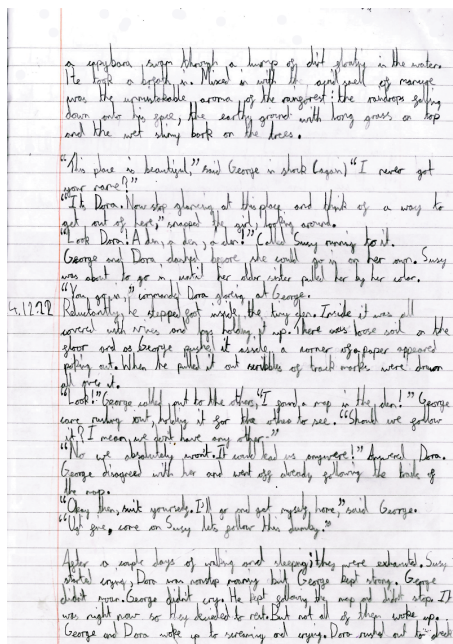 a capybara, swam through a lump of dirt floating in the water.
He took a breath in. Mixed in with the acrid smell of manure
was the unmistakable aroma of the rainforest: the raindrops falling
down onto his face, the earthy ground with long grass on top
and the wet shiny bark on the trees.
"This place is beautiful," said George in shock (again) "I never got
your name?"
"It's Dora. Now stop glancing at this place and think of a way to
get out of here," snapped the girl, looking around.
"Look Dora! A den, a den, a den!" Called Susy running to it.
George and Dora before she could go in on her own. Susy
was about to go in, until her older sister pulled her by her color.
"You go in," commanded Dora glaring at George.
4.12.22 Reluctantly, he stepped foot inside the tiny den. Inside it was all
covered with vines and logs holding it up. There was loose soil on the
floor and as George pushed it asside, a corner of a paper appeared
poking out. When he pulled it out scribbles of track marks were drawn
all over it.
"Look!" George called out to the others, "I found a map in the den!" George
came rushing out, holding it for the others to see. "Should we follow
it? I mean, we dont have any other."
"No we absolutely wont. It could lead us anywere!" Answered Dora.
George disagreed with her and went off already following the trails of
the map.
"Okay then, suit yourself. I'll go and get myself home," said George.
"Ugh fine, come on Susy lets follow this dumby."
After a couple days of walking and sleeping, they were exhausted. Susy
started crying, Dora was nonstop moaning but George kept strong. George
didnt moan. George didnt cry. He kept following the map and didnt stop. It
was night now so they decided to rest. But not all of them woke up.
George and Dora woke up to screaming and crying. Dora rushed out to check